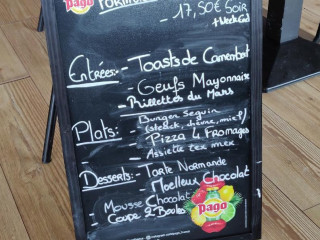 pago
FORMULE
- 17,50€ Soir
+ Week End
Entrées: - Toasts de Camembert
- Oeufs Mayonnaise
- Rillettes du Mans
Plats: - Burger Seguin
(steack, chèvre, miel)
- Pizza 4 Fromages
- Assiette tex mex
Desserts: - Tarte Normande
- Moelleux Chocolat
- Mousse Chocolat
- Coupe 2 Boules
pago